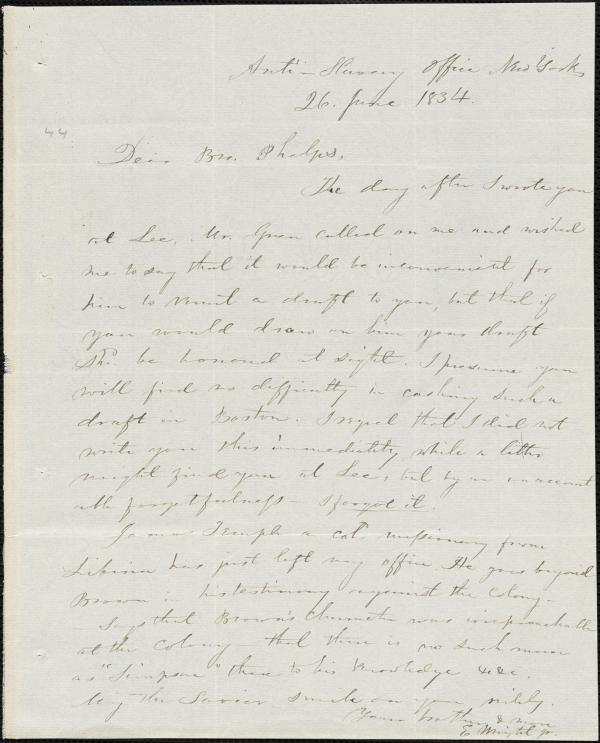 Anti-Slavery Office New York
26. June 1834.
44
Dear Bro. Phelps,
The day after I wrote you
at Lee, Mr. Green called on me and wished
me to say that it would be inconvenient for
him to remit a draft to you, but that if
you would draw on him your draft
shd. be honored at sight. I presume you
will find no difficulty in cashing such a
draft in Boston. I regret that I did not
write you this immediately, while a letter
might find you at Lee, but by an unaccount
able forgetfulness I forgot it.
James Temple a cold missionary from
Liberia has just left my office. He goes beyond
Brown in his testimony against the Colony—
— Says that Brown's character was irreproachable
at the Colony— that there is no such man
as "Simpson" there to his knowledge &c &c.
May the Savior smile on you richly.
Your brother & more
E. Wright jr.